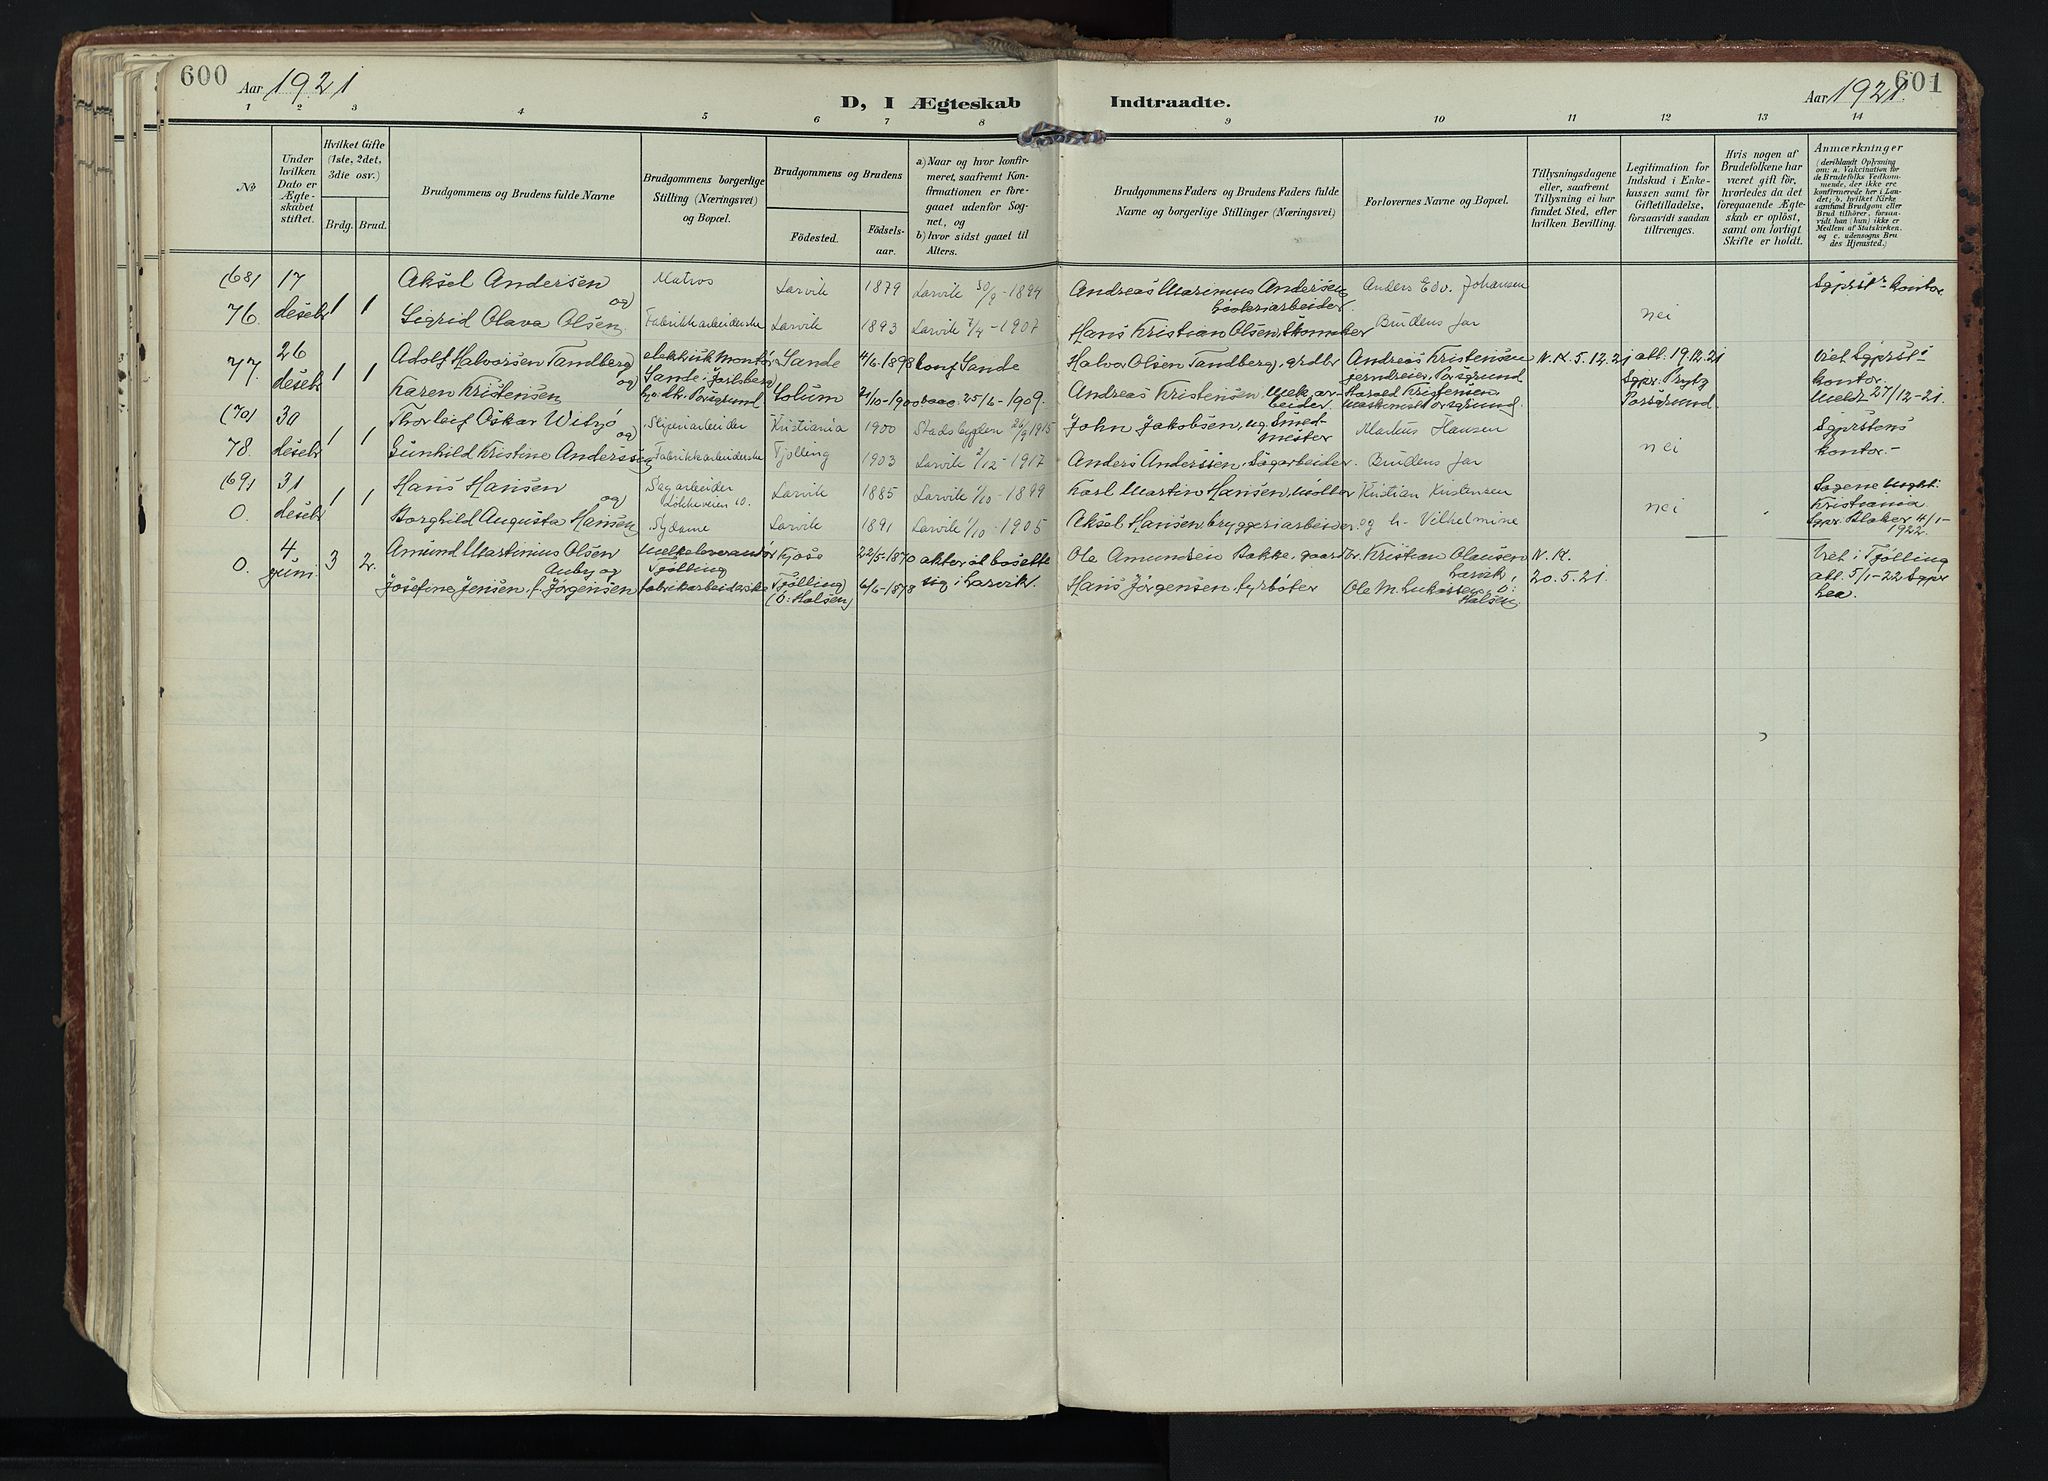 600
Aar 1921
D, I Ægteskab Indtraadte.
Aar 1921.
601
1 2 3 4 5 6 7 8 9 10 11 12 13 14
№
Under hvilken Dato er Ægteskabet stiftet.
Hvilket Gifte (1ste, 2det, 3die osv.)
Brdg. Brud.
Brudgommens og Brudens fulde Navne
Brudgommens borgerlige Stilling (Næringsvei) og Bopæl.
Brudgommens og Brudens
Födested.
Födselsaar.
a) Naar og hvor konfirmeret, saafremt Konfirmationen er foregaaet udenfor Sognet, og
b) hvor sidst gaaet til Alters.
Brudgommens Faders og Brudens Faders fulde Navne og borgerlige Stillinger (Næringsvei)
Forlovernes Navne og Bopæl.
Tillysningsdagene eller, saafremt Tillysning ei har fundet Sted, efter hvilken Bevilling.
Legitimation for Indskud i Enkekassen samt for Giftetilladelse, forsaavidt saadan tiltrænges.
Hvis nogen af Brudefolkene har været gift før, hvorledes da det foregaaende Ægteskab er opløst, samt om lovligt Skifte er holdt.
Anmærkninger
(deriblandt Oplysning om: a. Vakcination for de Brudefolks Vedkommende, der ikke ere konfirmerede her i Landet; b. hvilket Kirkesamfund Brudgom eller Brud tilhører, forsaavidt han (hun) ikke er Medlem af Statskirken, og c. udensogns Brudes Hjemsted.)
(68) 17 Aksel Andersen og Matros Larvik 1879 Larvik 30/9-1894 Andreas Marinius Andersen, Anders Edv. Johansen Sgprstr kontor
76. desebr 1 1 Sigrid Olava Olsen Fabrikkarbeiderske Larvik 1893 Larvik 7/4-1907 Hans Kristian Olsen, Skomaker Brudens far nei
77. 26 desebr 1 1 Adolf Halvorsen Tandberg og elektrisk montør Sande i Jarlsberg Sande 4/6-1898 konf Sande Halvor Olsen Tandberg, grdbr Andreas Kristensen jerndreier, Porsgrund N.K. 5.12.21 att. 19.12.21 Sgpr. Prytz Porsgrund Viet Sgprsts kontor.
Karen Kristensen Porsgrund Solum 2/10-1900 25/6-1909. Andreas Kristensen, arbeider Harald Kristensen maskinist Porsgrund. Meldt 27/12-21.
(70) 30 Thorleif Oskar Witsø og Sliperiarbeider Kristiania 1900 Stadsbygden 26/9 1915 John Jakobsen, Smedmester Markus Hansen Sgprstens kontor.-
78. desebr 1 1 Gunhild Kristine Anderssen Fabrikkarbeiderske Tjølling 1903 Larvik 2/12-1917 Anders Anderssen, Sagarbeider. Brudens far nei
(69) 31 Hans Hansen og Sagarbeider Løkkeveien 10. Larvik 1885 Larvik 1/10-1899 Karl Martin Hansen, Møller Kristian Kristensen Sagene Kristiania
0. desebr 1 1 Borghild Augusta Hansen Sydame Larvik 1891 Larvik 1/10-1905 Aksel Hansen bryggeriarbeider og h. Vilhelmine nei Sgpr. Blaker 4/1-1922.
0. 4. juni 3 2. Amund Martinius Olsen Auby og Melkeleverandør Tjølling Kjose 22/5-1870 akter at bosette sig i Larvik. Ole Amundsen Bakke, gaardbr. Kristian Olausen Larvik, N.K. 20.5.21. Viet i Tjølling
Josefine Jensen, f. Jørgensen fabrikarbeiderske Tjølling (ö: Halsen) 6/6-1878 Hans Jørgensen, fyrbøter Ole M. Lukassen, ö: Halsen. att. 5/1-22 Sgpr Lea.